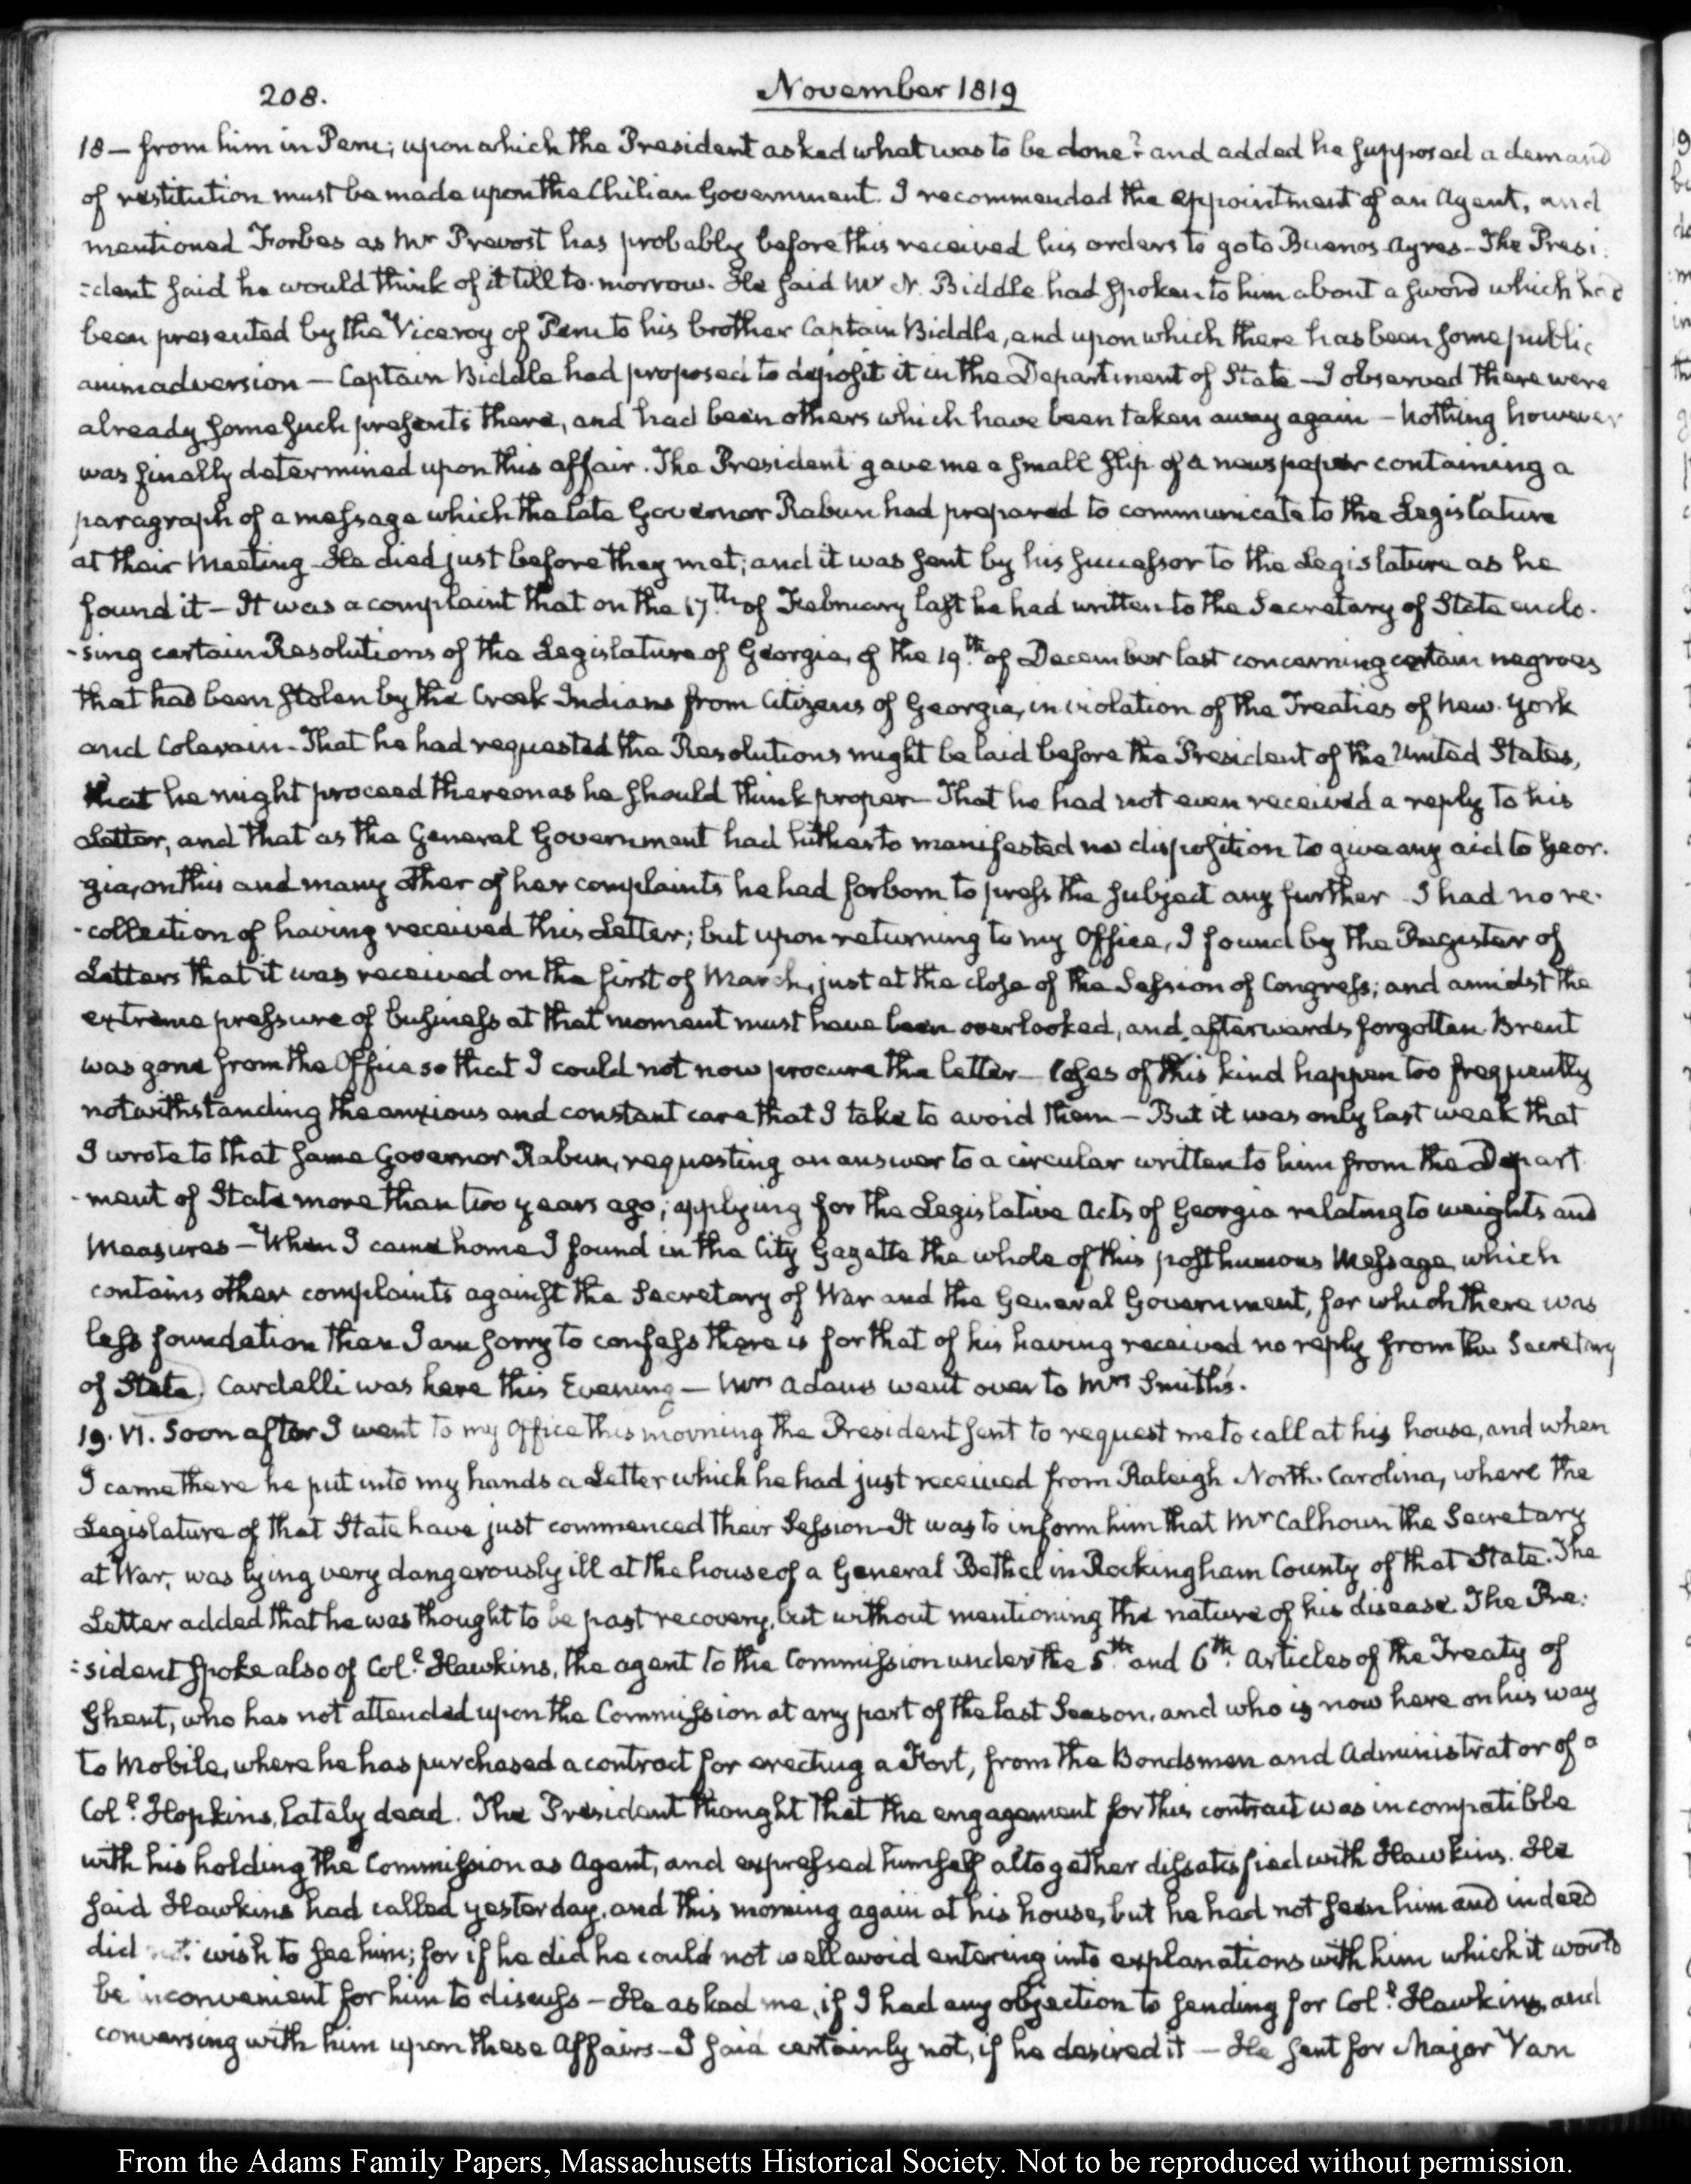 208.
November 1819
18— from him in Peru; upon which the President asked what was to be done? and added he supposed a demand
of restitution must be made upon the Chilian Government. I recommended the appointment of an Agent, and
mentioned Forbes as Mr Prevost has probably before this received his orders to go to Buenos Ayres — The Presi:
:dent said he would think of it till to-morrow. He said Mr N. Biddle had spoken to him about a sword which had
been presented by the Viceroy of Peru to his brother Captain Biddle, and upon which there has been some public
animadversion — Captain Biddle had proposed to deposit it in the Department of State — I observed there were
already some such presents there, and had been others which have been taken away again — Nothing however
was finally determined upon this affair. The President gave me a small slip of a newspaper containing a
paragraph of a message which the late Governor Rabun had prepared to communicate to the Legislature
at their Meeting — He died just before they met; and it was sent by his successor to the Legislature as he
found it — It was a complaint that on the 17th of February last he had written to the Secretary of State enclo-
-sing certain Resolutions of the Legislature of Georgia, of the 19th of December last concerning certain negroes
that had been stolen by the Creek Indians from Citizens of Georgia, in violation of the Treaties of New-York
and Colerain — That he had requested the Resolutions might be laid before the President of the United States,
that he might proceed thereon as he should think proper — That he had not even received a reply to his
Letter, and that as the General Government had hitherto manifested no disposition to give any aid to Geor-
gia, on this and many other of her complaints he had forborn to press the subject any further. I had no re-
-collection of having received this Letter; but upon returning to my Office, I found by the Register of
Letters that it was received on the first of March, just at the close of the Session of Congress; and amidst the
extreme pressure of business at that moment must have been overlooked, and afterwards forgotten. Brent
was gone from the Office so that I could not now procure the letter — Cases of this kind happen too frequently
notwithstanding the anxious and constant care that I take to avoid them — But it was only last week that
I wrote to that same Governor Rabun, requesting an answer to a circular written to him from the Depart
-ment of State more than two years ago; applying for the Legislative Acts of Georgia relating to weights and
Measures — When I came home I found in the City Gazette the whole of this posthumous Message, which
contains other complaints against the Secretary of War and the General Government, for which there was
less foundation than I am sorry to confess there is for that of his having received no reply from the Secretary
of State. Cardelli was here this Evening — Mrs Adams went over to Mrs Smith's.
19. VI. Soon after I went to my Office this morning the President sent to request me to call at his house, and when
I came there he put into my hands a Letter which he had just received from Raleigh North-Carolina, where the
Legislature of that State have just commenced their Session — It was to inform him that Mr Calhoun the Secretary
at War, was lying very dangerously ill at the house of a General Bethel in Rockingham County of that State. The
Letter added that he was thought to be past recovery, but without mentioning the nature of his disease. The Pre:
:sident spoke also of Coll. Hawkins, the agent to the Commission under the 5th and 6th Articles of the Treaty of
Ghent, who has not attended upon the Commission at any part of the last Season, and who is now here on his way
to Mobile, where he has purchased a contract for erecting a Fort, from the Bondsmen and Administrator of a
Coll. Hopkins, lately dead. The President thought that the engagement for this contract was incompatible
with his holding the Commission as Agent, and expressed himself altogether dissatisfied with Hawkins. He
said Hawkins had called yesterday, and this morning again at his house, but he had not seen him and indeed
did not wish to see him; for if he did he could not well avoid entering into explanations with him which it would
be inconvenient for him to discuss — He asked me, if I had any objection to sending for Coll. Hawkins, and
conversing with him upon these Affairs — I said certainly not, if he desired it — He sent for Major Van
From the Adams Family Papers, Massachusetts Historical Society. Not to be reproduced without permission.